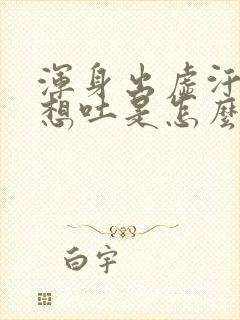 渾身出虛汗
想吐是怎麼
白宇